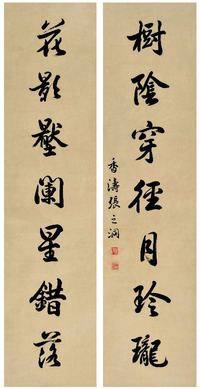 樹陰穿徑月玲瓏
香濤張之洞
花影壓闌星錯落